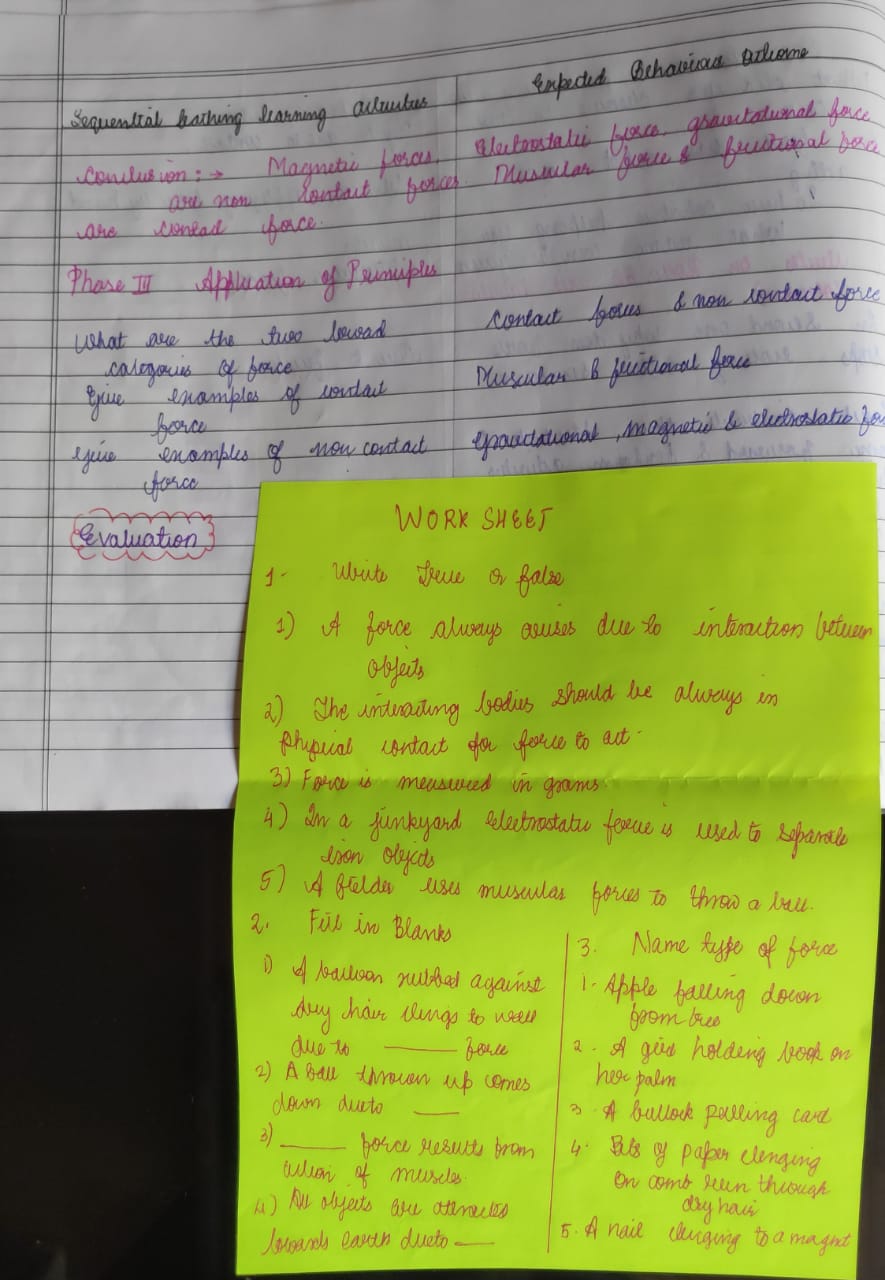 Sequential teaching learning activities
Expected Behavioural outcome
Conclusion:→ Magnetic forces, Electrostatic force, gravitational force
are non contact forces. Muscular force & frictional force
are contact force.
Phase III Application of Principles
What are the two broad
categories of force
Contact forces & non contact force
Give examples of contact
force
Muscular & frictional force
Give examples of non contact
force
Gravitational, magnetic & electrostatic
Evaluation
WORK SHEET
1- Write True or false
1) A force always arises due to interaction between
objects
2) The interacting bodies should be always in
Physical contact for force to act.
3) Force is measured in grams.
4) In a junkyard electrostatic force is used to separate
iron objects
5) A fielder uses muscular forces to throw a ball.
2. Fill in Blanks
1) A balloon rubbed against
dry hair clings to wall
due to ____ force
2) A ball thrown up comes
down dueto ____
3) ____ force results from
action of muscles.
4) All objects are attracted
towards earth dueto ____
3. Name type of force
1. Apple falling down
from tree
2. A girl holding book on
her palm
3. A bullock pulling card
4. Bits of paper clinging
on comb run through
dry hair
5. A nail clinging to a magnet